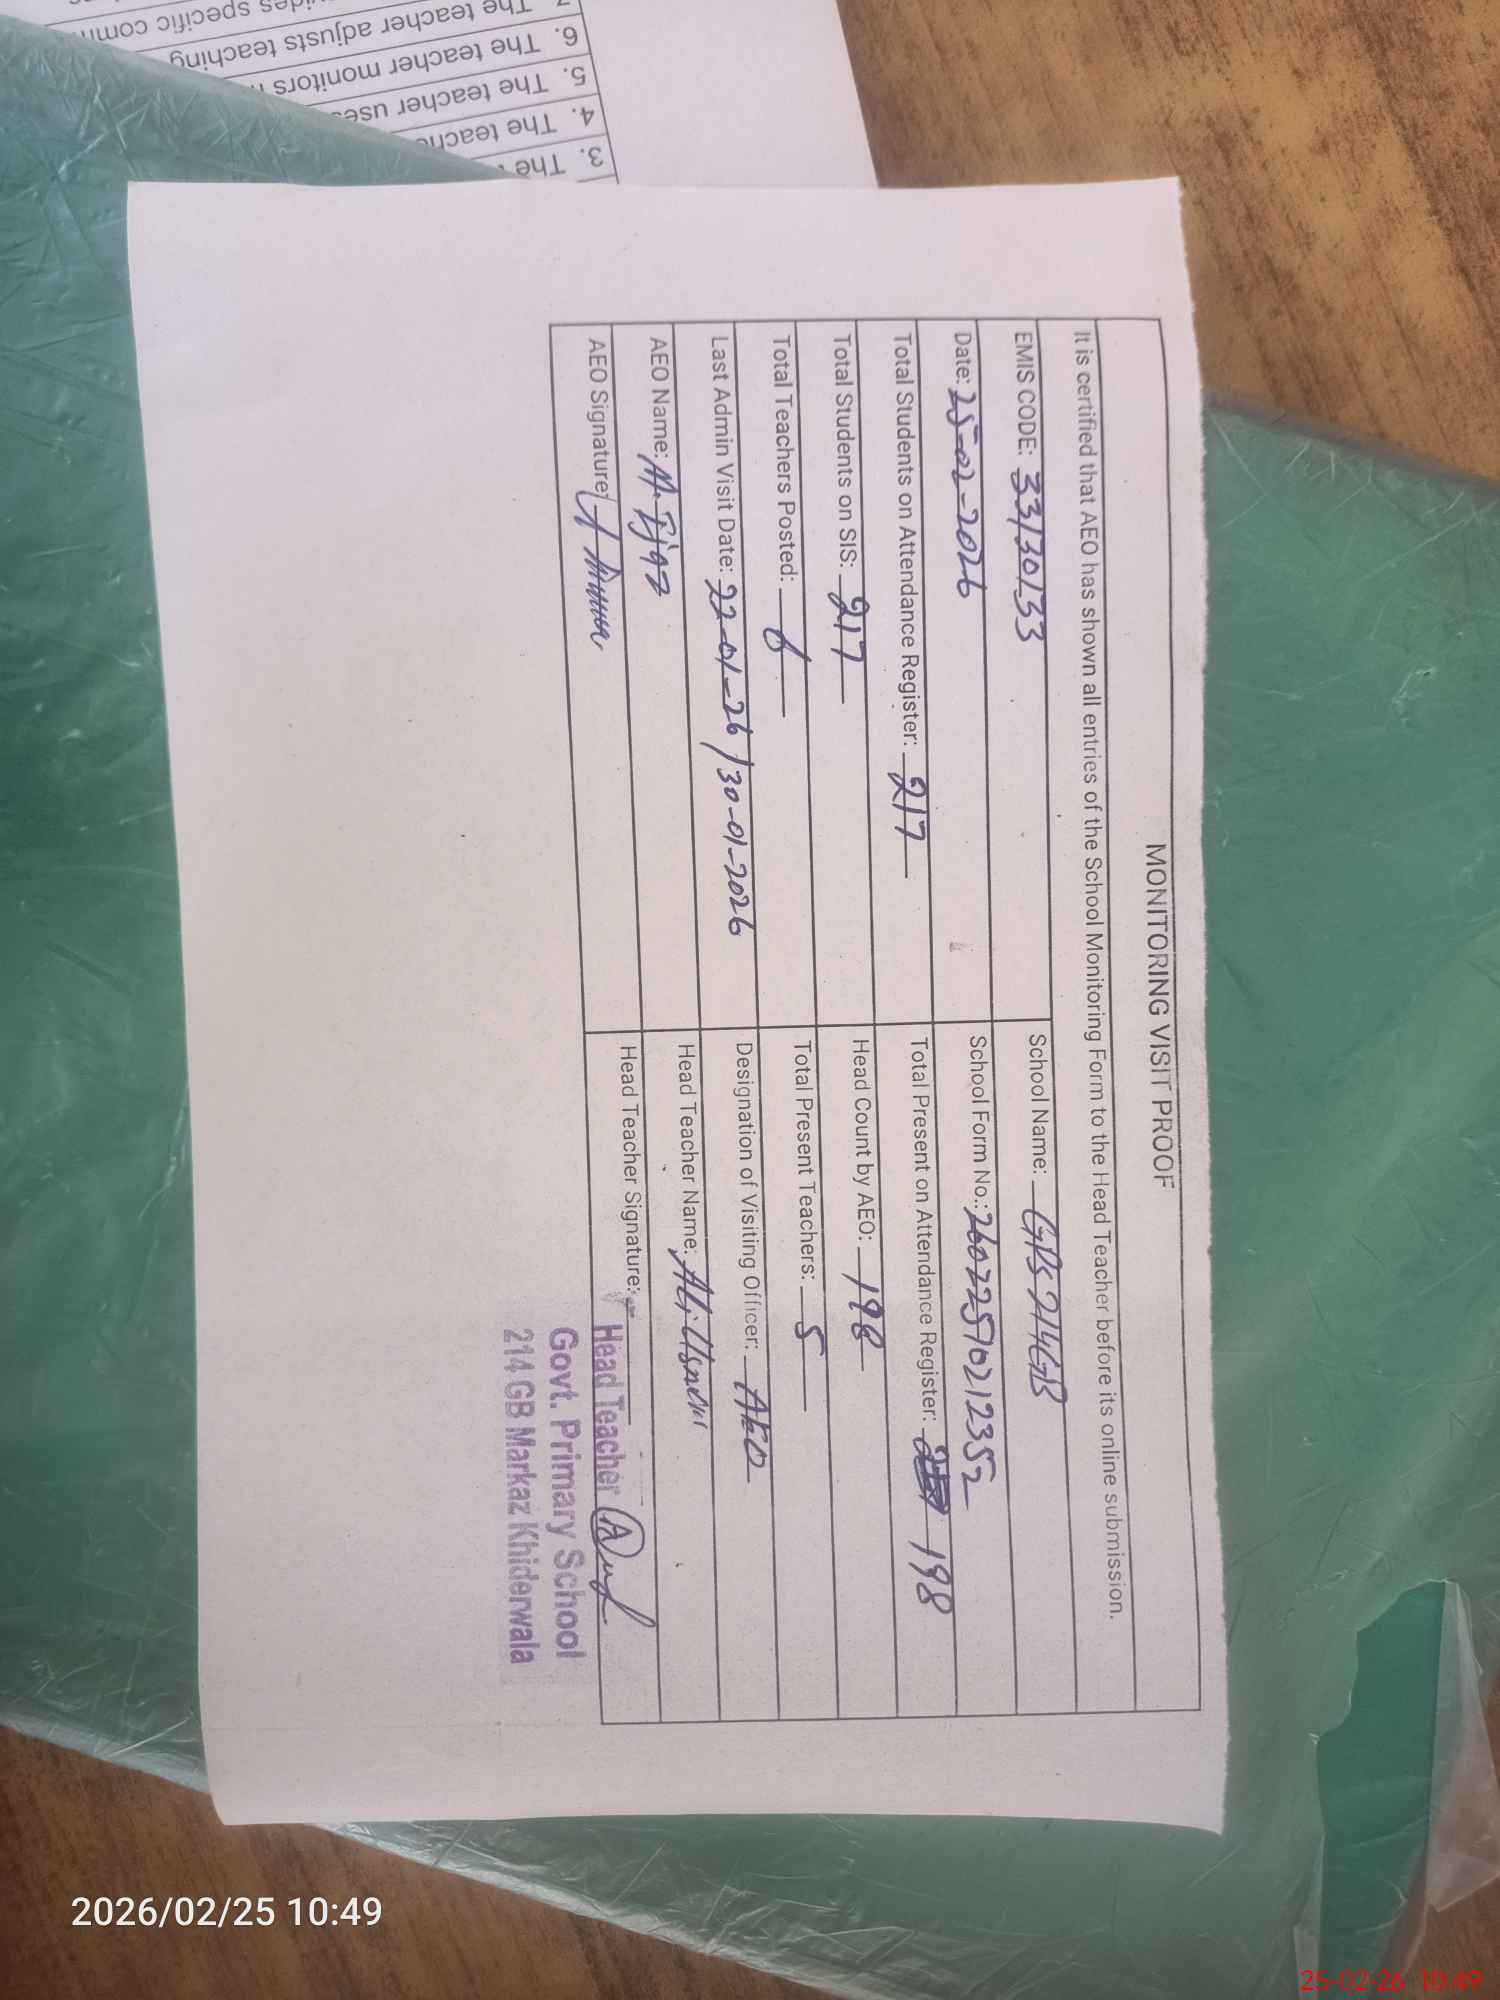 MONITORING VISIT PROOF
It is certified that AEO has shown all entries of the School Monitoring Form to the Head Teacher before its online submission.
EMIS CODE: 33130133
School Name: GPS 214GB
Date: 25-02-2026
School Form No.: 26022510212352
Total Students on Attendance Register: 217
Total Present on Attendance Register: 198
Total Students on SIS: 217
Head Count by AEO: 198
Total Teachers Posted: 6
Total Present Teachers: 5
Last Admin Visit Date: 22-01-26 / 30-01-2026
Designation of Visiting Officer: AEO
AEO Name: M. Ijaz
Head Teacher Name: Ali Usman
AEO Signature:
Head Teacher Signature:
Head Teacher
Govt. Primary School
214 GB Markaz Khiderwala
3. The
4. The
5. The teacher
6. The teacher monitors
The teacher adjusts teaching
specific
2026/02/25 10:49
25-02-26 10:49